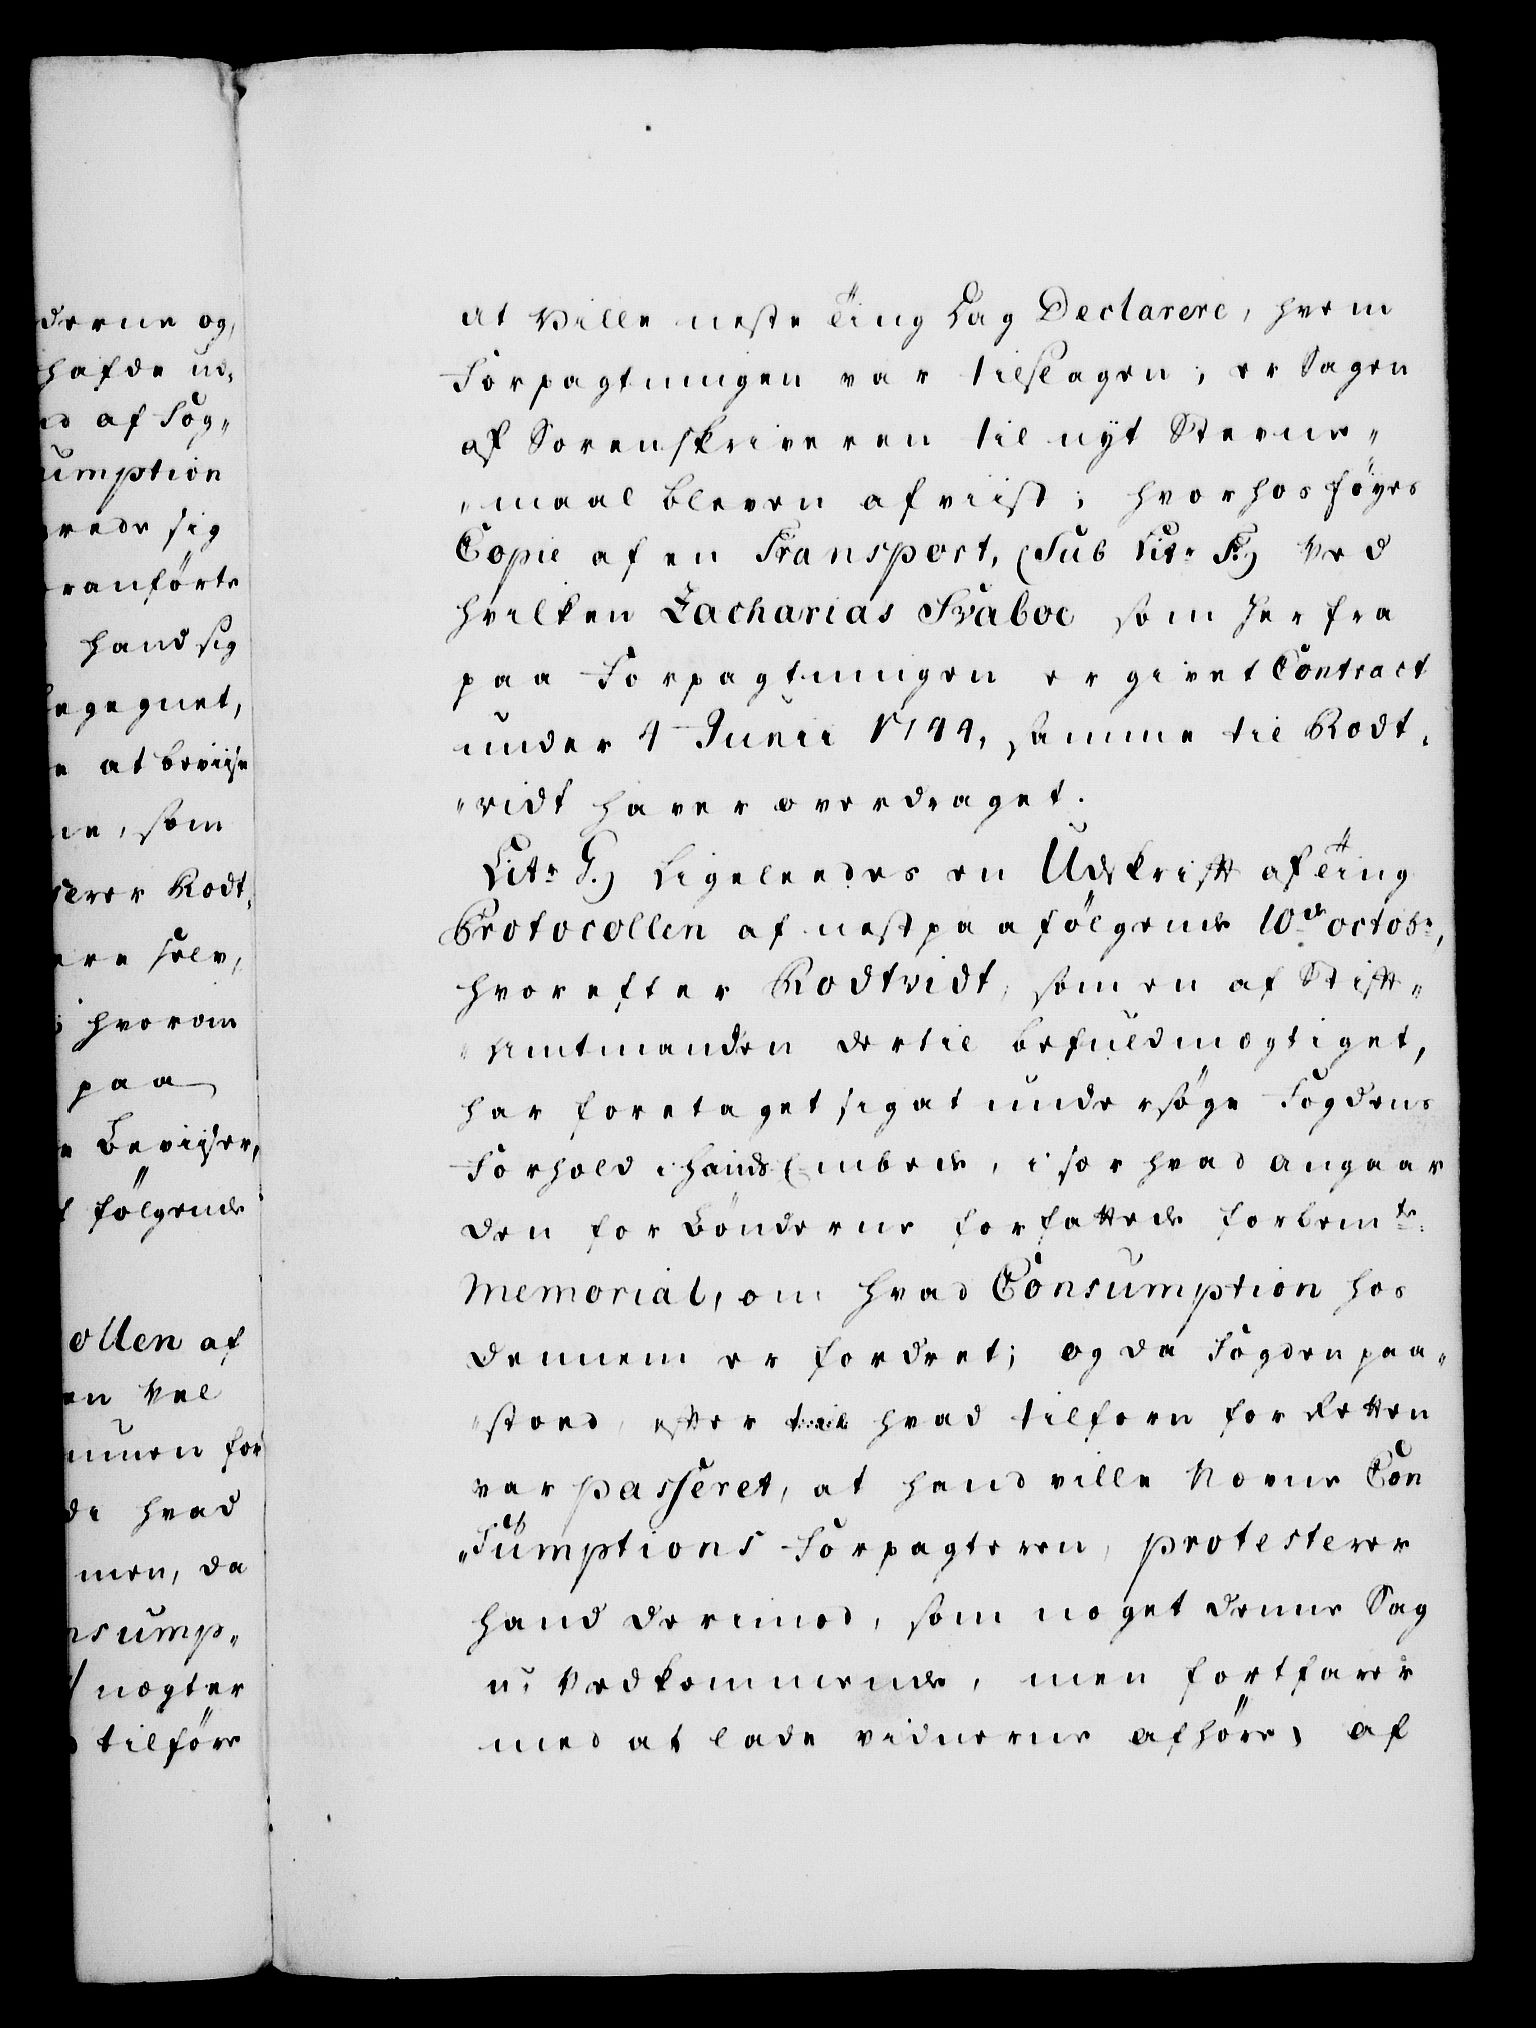 derne og,
hafde ud,
ed af Fog„
umption
rede sig
ranførte
hand sig
egegnet,
e at beviise
ne, som
serer Rodt,
ere selv,
; hvorom
paa
e Beviiser,
t følgende
ollen af
en vel
nnen for
di hvad
men, da
nsump„
nægter
tilføre
at ville neste Ting Dag Declarere, hvem
Forpagtningen var tilslagen, er Sagen
af Sorenskriveren til nyt Stevne„
„maal bleven afviist; hvorhos føyes
Copie af en Transport, (Sub Litr F.) ved
hvilken Zacharias Svaboe som her fra
paa Forpagtningen er givet Contract
under 4 Junii 1744, samme til Rodt„
„vidt haver overdraget.
Litr G.) Ligeleedes en Udskrift af Ting
Protocollen af nestpaafølgende 10de octobr,
hvorefter Rodtvidt, som en af Stift„
„Amtmanden dertil befuldmægtiget,
har foretaget sig at undersøge Fogdens
Forhold i hands Embede, i sær hvad angaar
den for Bønderne forfattede forbemte
Memorial, om hvad Consumption hos
dennem er fordret; og da Fogden paa„
„stoed, efter hvad tilforn for Retten
var passeret, at hand ville Nævne Con
„Sumptions Forpagteren, protesterer
hand derimod, som noget denne Sag
u, vedkommende, men fortfarer
med at lade vidnerne afhøre, af